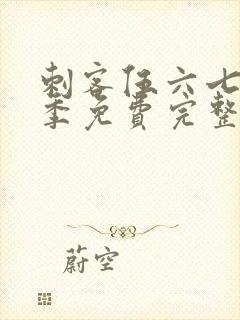 刺客伍六七
季免費完整
蔚空